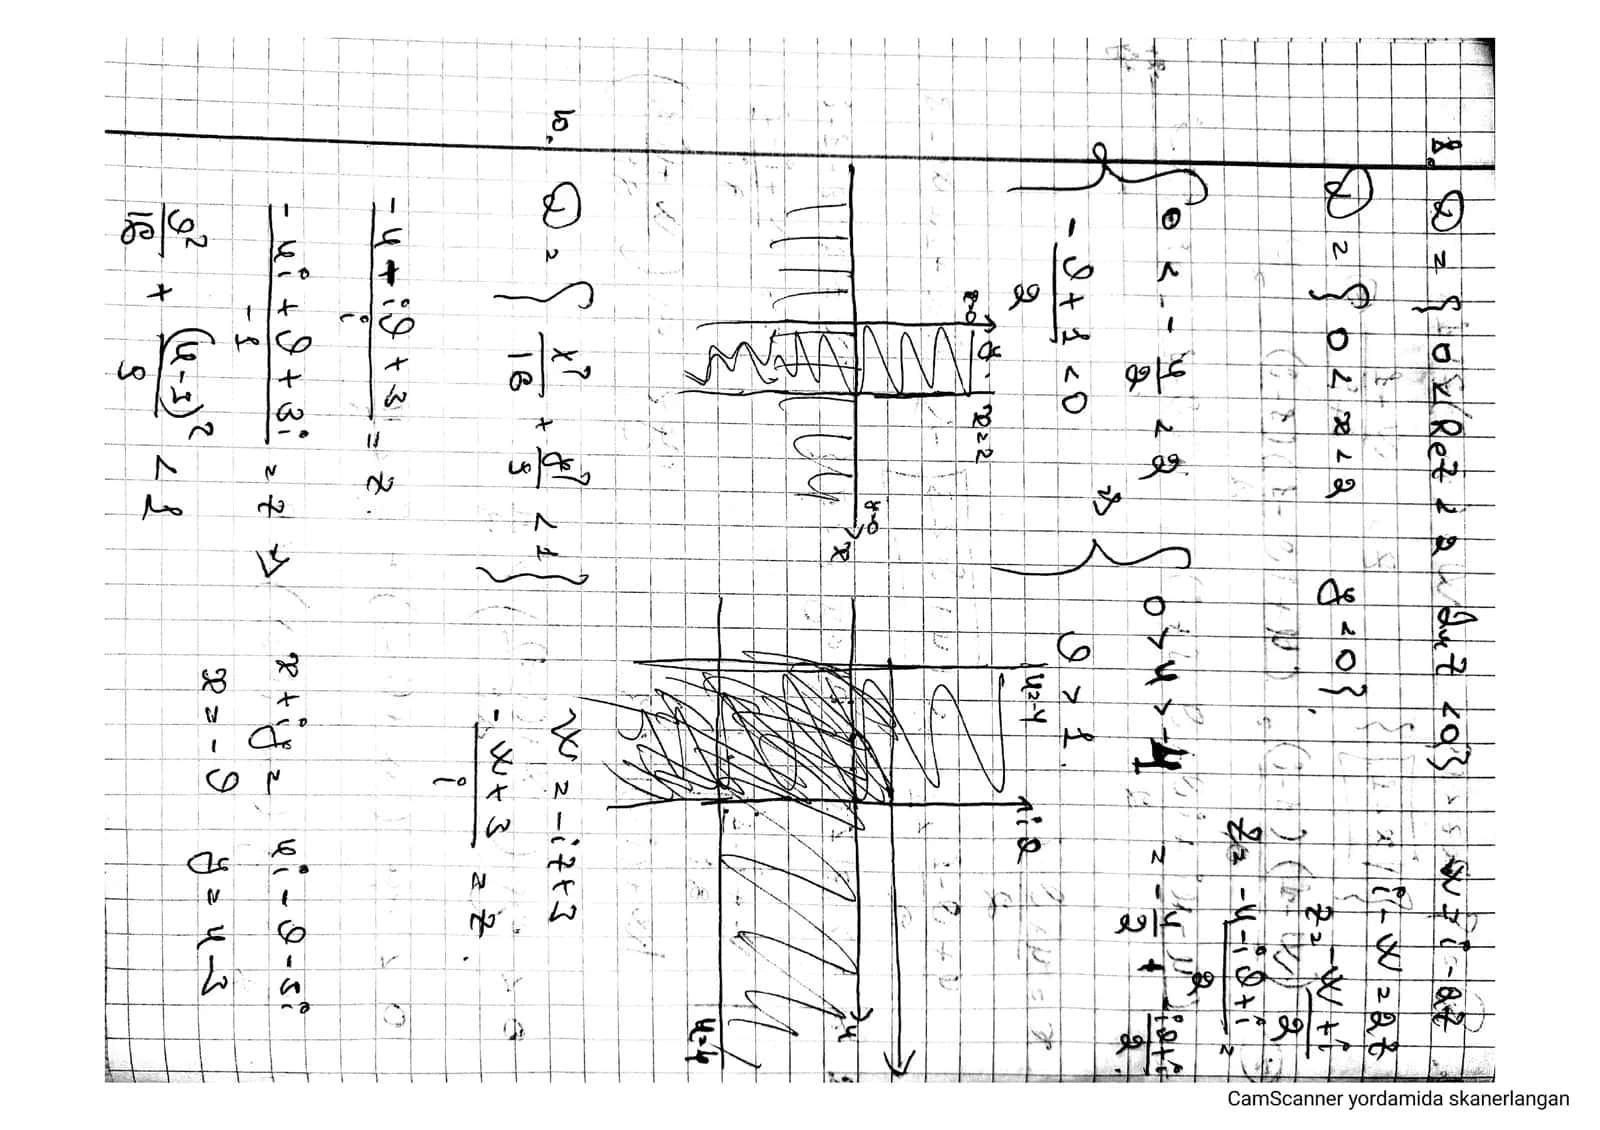 8. D = { 0 < Re z < 2 Im z < 0} w = i - 2z
D = { 0 < x < 2 y < 0}. i - w = 2z
z = -w + i / 2
z = -u - iϑ + i / 2 =
{ 0 < -u/2 < 2 ⇒ { 0 > u > -4 = -u/2 + -iϑ + i / 2
-ϑ + 1 / 2 < 0 ϑ > 1.
x=0 y x=2 u=-4 iϑ
y=0 x u
u=4
10. D = { x²/16 + y²/9 < 1 } w = -iz + 3
-w + 3 / i = z.
-u + iϑ + 3 / i = z.
-ui + ϑ + 3i / -1 = z ⇒ x + iy = ui - ϑ - 3i
x = -ϑ y = u - 3
ϑ²/16 + (u-3)²/9 < 1
CamScanner yordamida skanerlangan